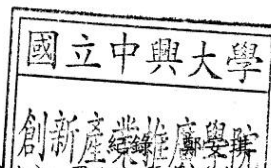 國立中興大學
創新產業推廣學院
紀錄 鄭安琪